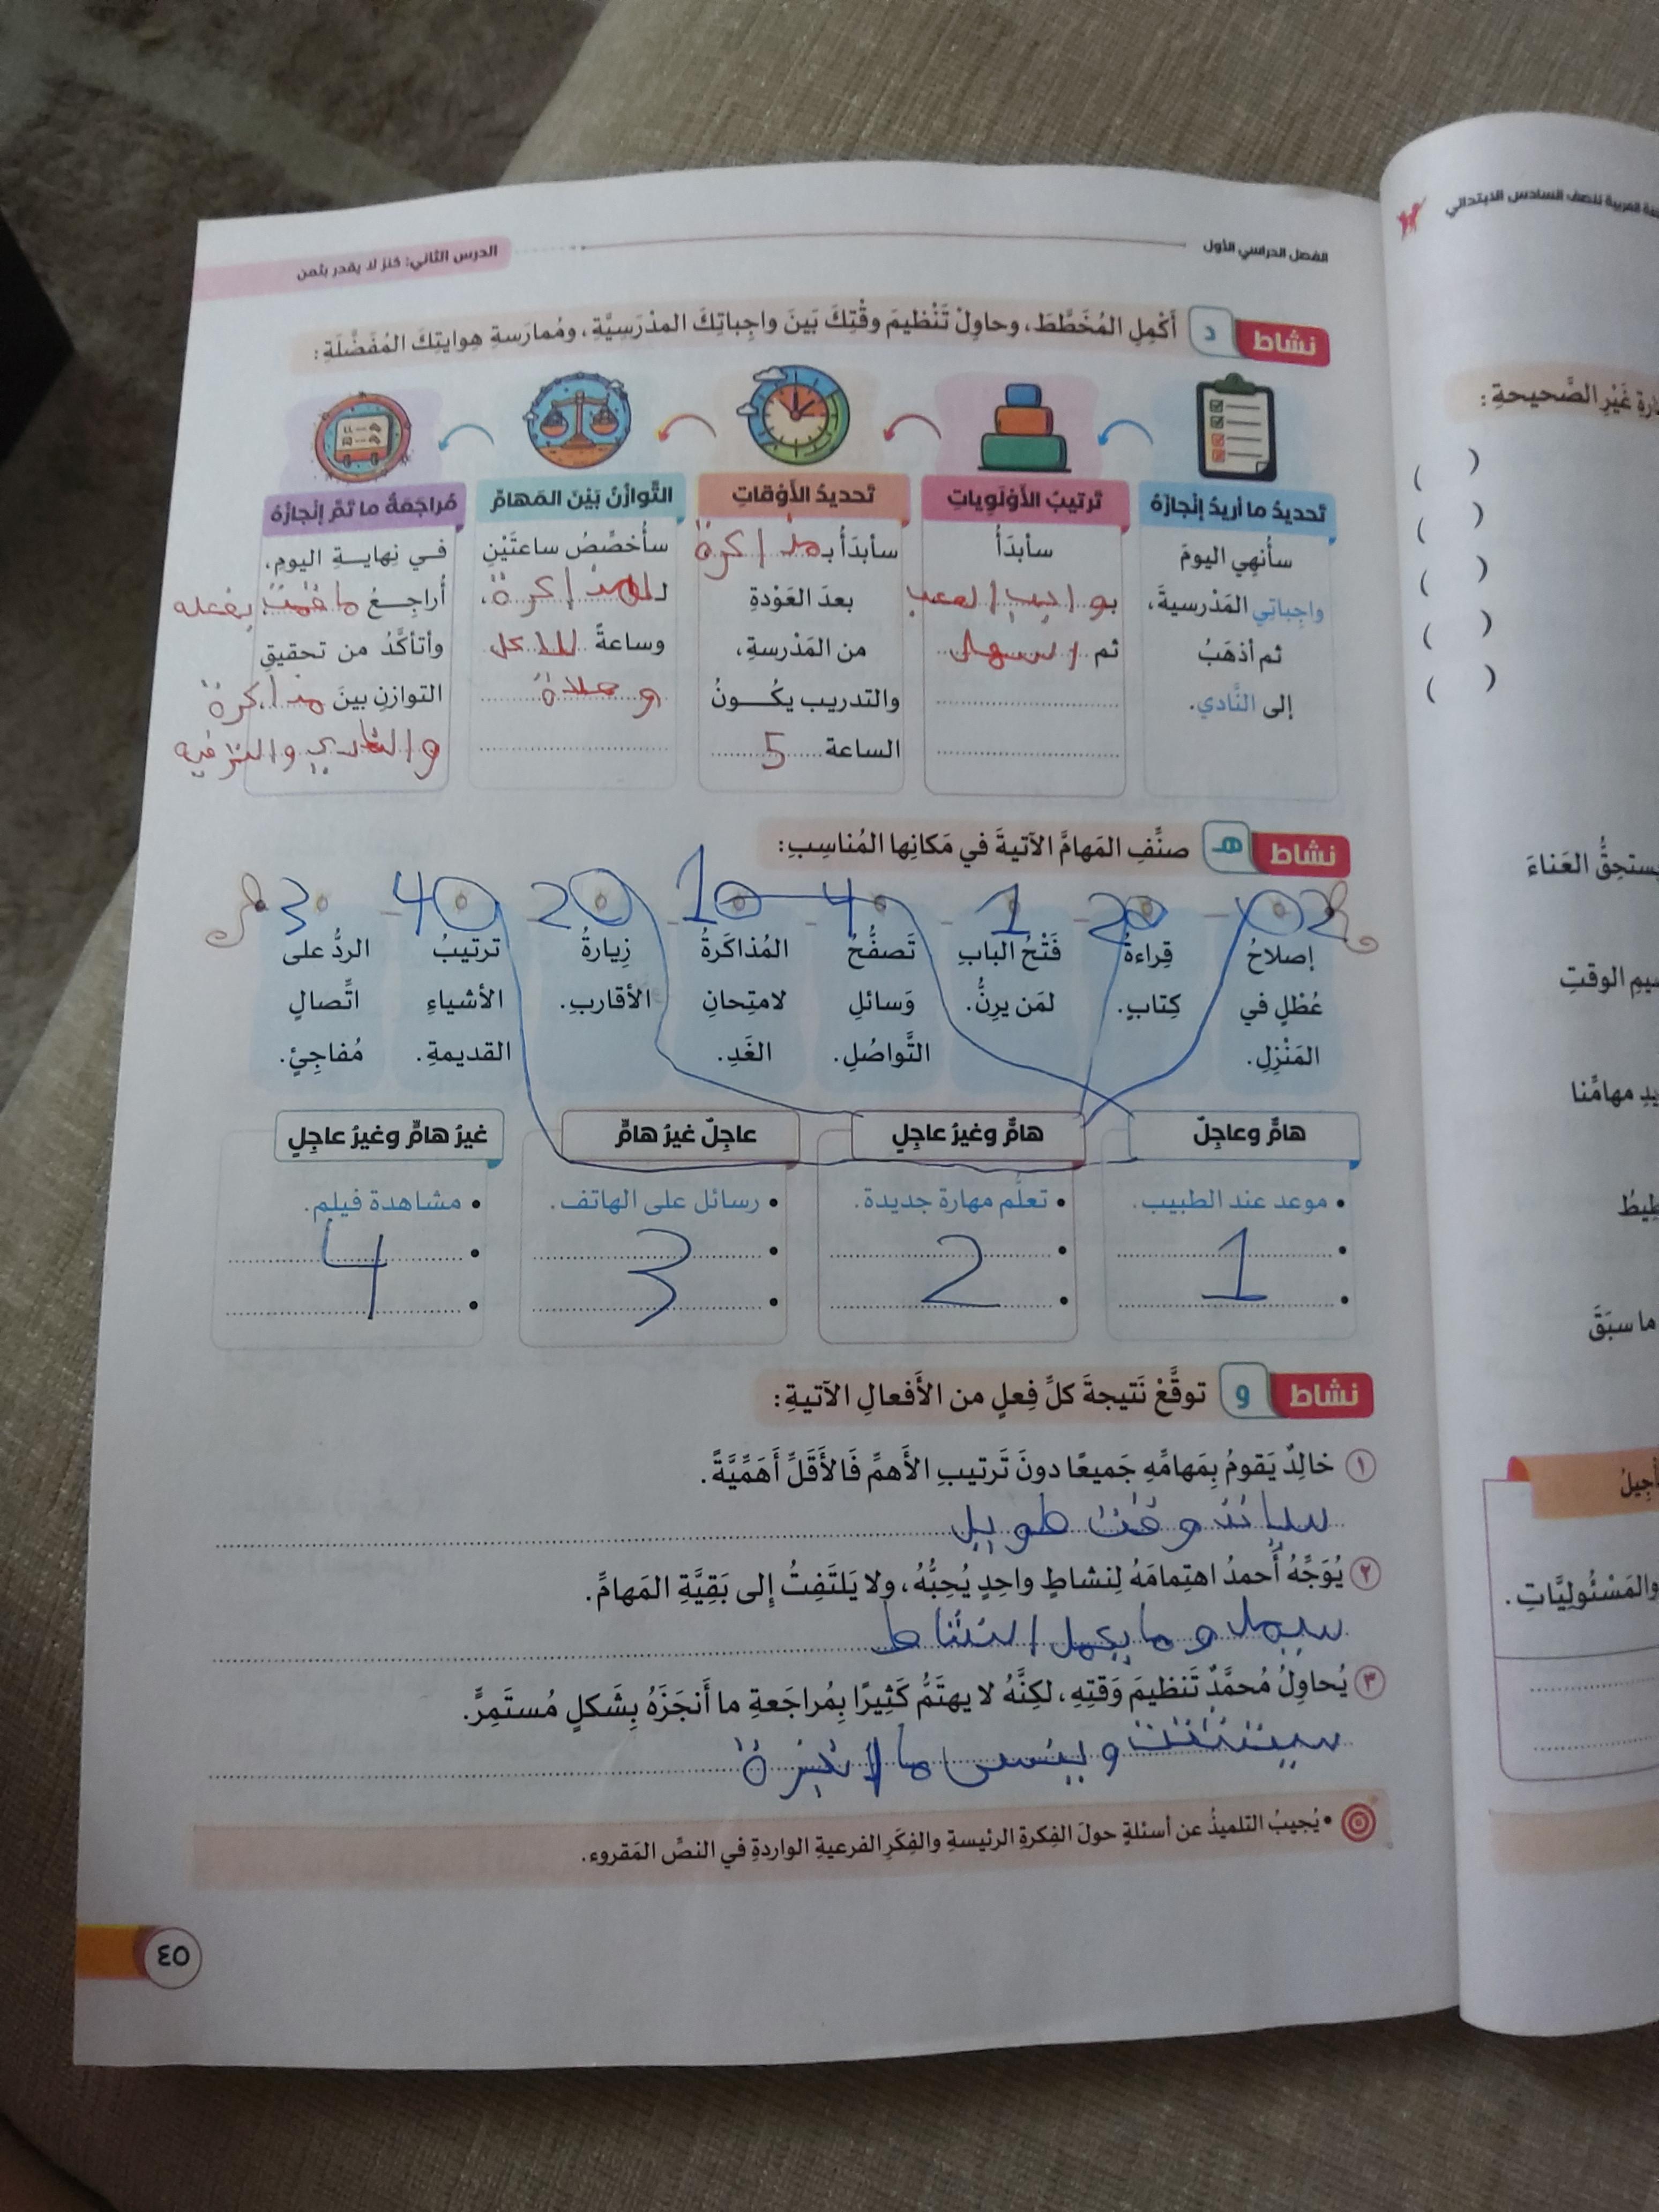 الفصل الدراسي الأول
الدرس الثاني: كنز لا يقدر بثمن
اللغة العربية للصف السادس الابتدائي
نشاط د أَكْمِلِ المُخَطَّطَ، وحاوِلْ تَنْظيمَ وقْتِكَ بَينَ واجِباتِكَ المدْرَسِيَّةِ، ومُمارَسةِ هِوايتِكَ المُفَضَّلَةِ:
تَحديدُ ما أريدُ إنْجازَهُ
سأُنهِي اليومَ
واجِباتِي المَدْرسيةَ،
ثم أذهَبُ
إلى النَّادي.
تَرتيبُ الأَوْلَوِياتِ
سأبدَأُ
بواجب الصعب
ثم السهل
تَحديدُ الأَوْقاتِ
سأبدَأُ بمذاكرة
بعدَ العَوْدةِ
من المَدْرسةِ،
والتدريب يكُونُ
الساعة 5
التَّوازُنُ بَيْنَ المَهامِّ
سأُخصِّصُ ساعتَيْنِ
للمذاكرة،
وساعةً للاكل
و صلاة
مُراجَعَةُ ما تَمَّ إنْجازُهُ
في نِهايةِ اليومِ،
أُراجِعُ ما قمت بفعله
وأتأكَّدُ من تحقيقِ
التوازنِ بينَ مذاكرة
و النادي والترفيه
نشاط هـ صنِّفِ المَهامَّ الآتيةَ في مَكانِها المُناسِبِ:
2 2 1 4 1 2 4 3
إصلاحُ
عُطْلٍ في
المَنْزِلِ.
قِراءةُ
كِتابٍ.
فَتْحُ البابِ
لمَن يرِنُّ.
تَصفُّحُ
وَسائلِ
التَّواصُلِ.
المُذاكَرةُ
لامتِحانِ
الغَدِ.
زِيارةُ
الأقاربِ.
ترتيبُ
الأشياءِ
القديمةِ.
الردُّ على
اتِّصالٍ
مُفاجِئٍ.
هامٌّ وعاجِلٌ
• موعد عند الطبيب.
1
هامٌّ وغيرُ عاجِلٍ
• تعلُّم مهارة جديدة.
2
عاجِلٌ غيرُ هامٍّ
• رسائل على الهاتف.
3
غيرُ هامٍّ وغيرُ عاجِلٍ
• مشاهدة فيلم.
4
نشاط و توقَّعْ نَتيجةَ كلِّ فِعلٍ من الأَفعالِ الآتيةِ:
١ خالِدٌ يَقومُ بِمَهامِّهِ جَميعًا دونَ تَرتيبِ الأَهمِّ فَالأَقَلِّ أَهَمِّيَّةً.
وقت طويل
٢ يُوَجِّهُ أَحمدُ اهتِمامَهُ لِنشاطٍ واحِدٍ يُحِبُّهُ، ولا يَلتَفِتُ إلى بَقِيَّةِ المَهامِّ.
سيمل و ما يكمل النشاط
٣ يُحاوِلُ مُحمَّدٌ تَنظيمَ وَقتِهِ، لكِنَّهُ لا يهتَمُّ كَثيرًا بِمُراجَعةِ ما أَنجَزَهُ بِشَكلٍ مُستَمِرٍّ.
سيتشتت و ينسى ما
• يُجيبُ التلميذُ عن أسئلةٍ حولَ الفِكرةِ الرئيسةِ والفِكَرِ الفرعيةِ الواردةِ في النصِّ المَقروء.
٤٥
غَيْرِ الصَّحيحةِ:
( )
( )
( )
( )
( )
يستحِقُّ العَناءَ
الوقتِ
مهامِّنا
ما سبَقَ
والمَسْئُوليَّاتِ.